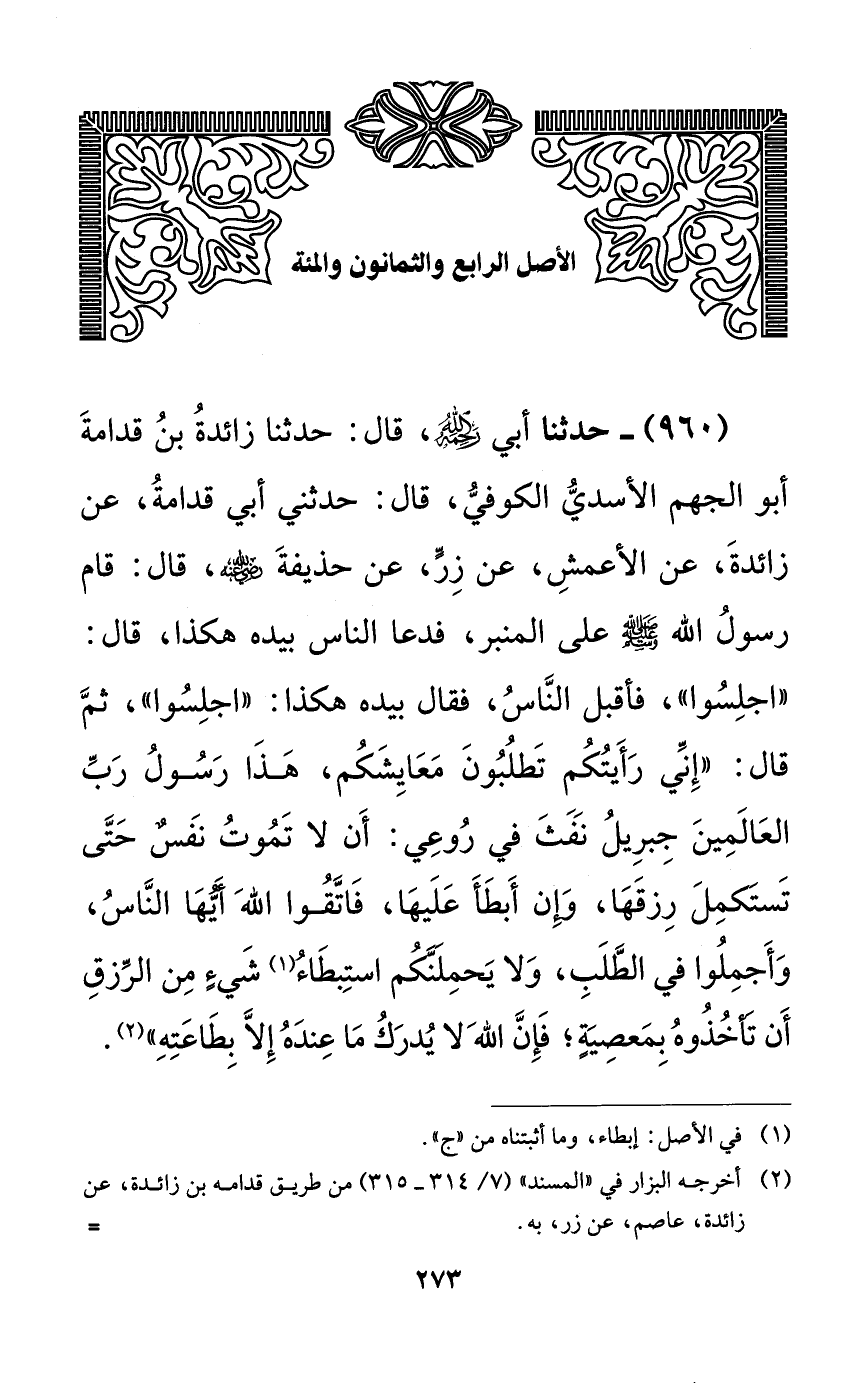 الأصل الرابع والثمانون والمئة
(٩٦٠) ـ حدثنا أبي رَحِمَهُ اللهُ، قال: حدثنا زائدةُ بنُ قدامةَ
أبو الجهم الأسديُّ الكوفيُّ، قال: حدثني أبي قدامةُ، عن
زائدةَ، عن الأعمشِ، عن زِرٍّ، عن حذيفةَ رضي الله عنه، قال: قام
رسولُ الله ﷺ على المنبر، فدعا الناس بيده هكذا، قال:
«اجلِسُوا»، فأقبل النَّاسُ، فقال بيده هكذا: «اجلِسُوا»، ثمَّ
قال: «إِنِّي رَأَيتُكُم تَطلُبُونَ مَعَايِشَكُم، هَـذَا رَسُـولُ رَبِّ
العَالَمِينَ جِبرِيلُ نَفَثَ في رُوعِي: أَن لا تَمُوتُ نَفسٌ حَتَّى
تَستَكمِلَ رِزقَهَا، وَإِن أَبطَأَ عَلَيهَا، فَاتَّقُـوا اللهَ أَيُّهَا النَّاسُ،
وَأَجمِلُوا في الطَّلَبِ، وَلا يَحمِلَنَّكُم استِبطَاءُ(١) شَيءٍ مِن الرِّزقِ
أَن تَأخُذُوهُ بِمَعصِيَةٍ؛ فَإِنَّ اللهَ لا يُدرَكُ مَا عِندَهُ إِلاَّ بِطَاعَتِهِ»(٢).
(١) في الأصل: إبطاء، وما أثبتناه من «ج».
(٢) أخرجـه البزار في «المسند» (٧/ ٣١٤ ـ ٣١٥) من طريـق قدامـه بن زائـدة، عن
زائدة، عاصم، عن زر، به. =
٢٧٣